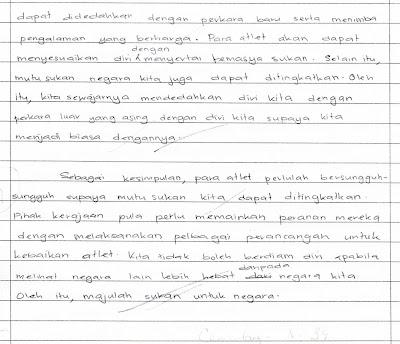 dapat didedahkan dengan perkara baru serta menimba
pengalaman yang berharga. Para atlet akan dapat
menyesuaikan diri dengan menyertai temasya sukan. Selain itu,
mutu sukan negara kita juga dapat ditingkatkan. Oleh
itu, kita sewajarnya mendedahkan diri kita dengan
perkara luar yang asing dengan diri kita supaya kita
menjadi biasa dengannya.
Sebagai kesimpulan, para atlet perlulah bersungguh-
sungguh supaya mutu sukan kita dapat ditingkatkan.
Pihak kerajaan pula perlu memainkan peranan mereka
dengan melaksanakan pelbagai perancangan untuk
kebaikan atlet. Kita tidak boleh berdiam diri apabila
melihat negara lain lebih hebat daripada negara kita
Oleh itu, majulah sukan untuk negara.